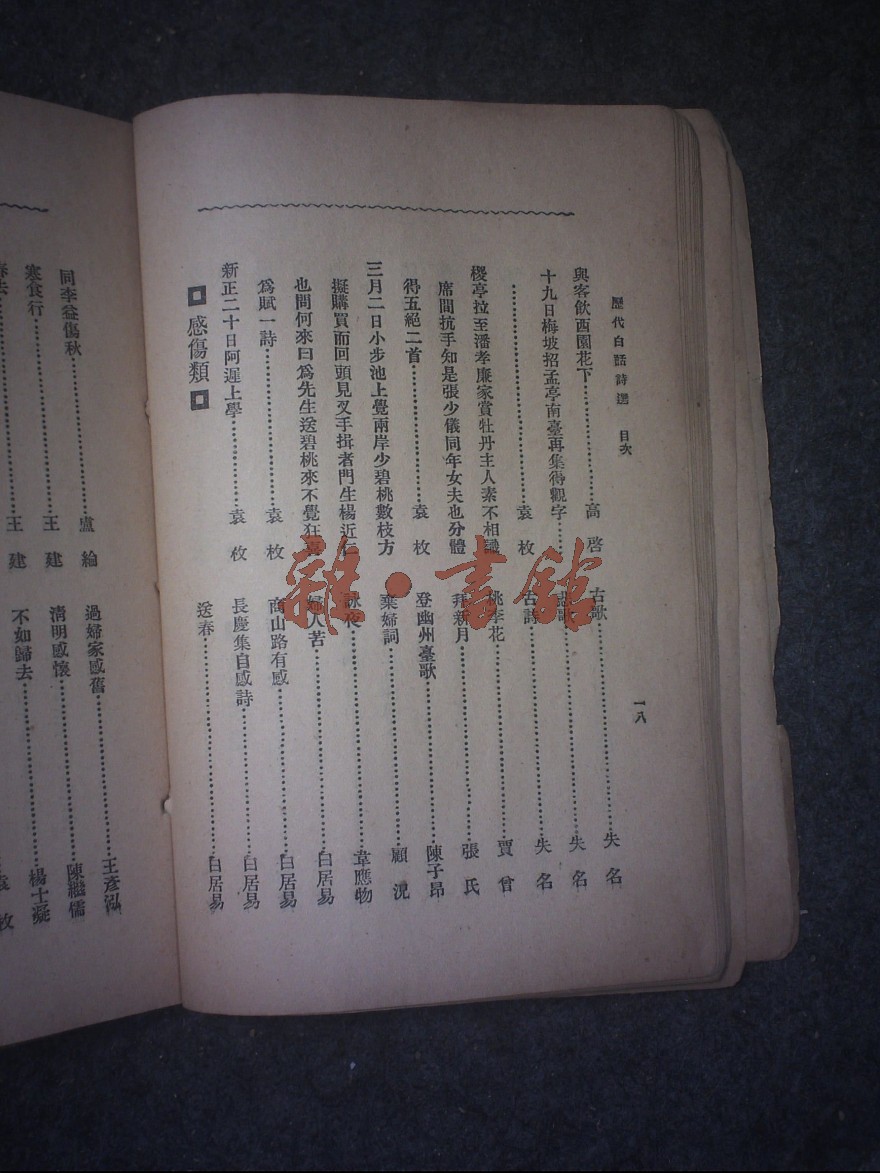 歷代白話詩選　目次
一八
與客飲西園花下……高啓
十九日梅坡招孟亭南臺再集得觀字……
……袁枚
稷亭拉至潘孝廉家賞牡丹主人素不相識
席間抗手知是張少儀同年女夫也分體
得五絕二首……袁枚
三月二日小步池上覺兩岸少碧桃數枝方
擬購買而回頭見叉手揖者門生楊近仁
也問何來曰爲先生送碧桃來不覺狂喜
爲賦一詩……袁枚
新正二十日阿遲上學……袁枚
感傷類
古歌……失名
悲歌……失名
古詩……失名
桃李花……賈曾
拜新月……張氏
登幽州臺歌……陳子昂
棄婦詞……顧況
詠夜……韋應物
婦人苦……白居易
商山路有感……白居易
長慶集自感詩……白居易
送春……白居易
同李益傷秋……盧綸
寒食行……王建
春去……王建
過婦家感舊……王彥泓
清明感懷……陳繼儒
不如歸去……楊士凝
袁枚
雜·書館